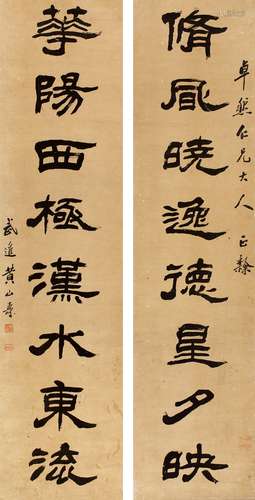 卓仁兄大人 正
脩風曉逸德星夕映
華陽西極漢水東流
武進黃山壽